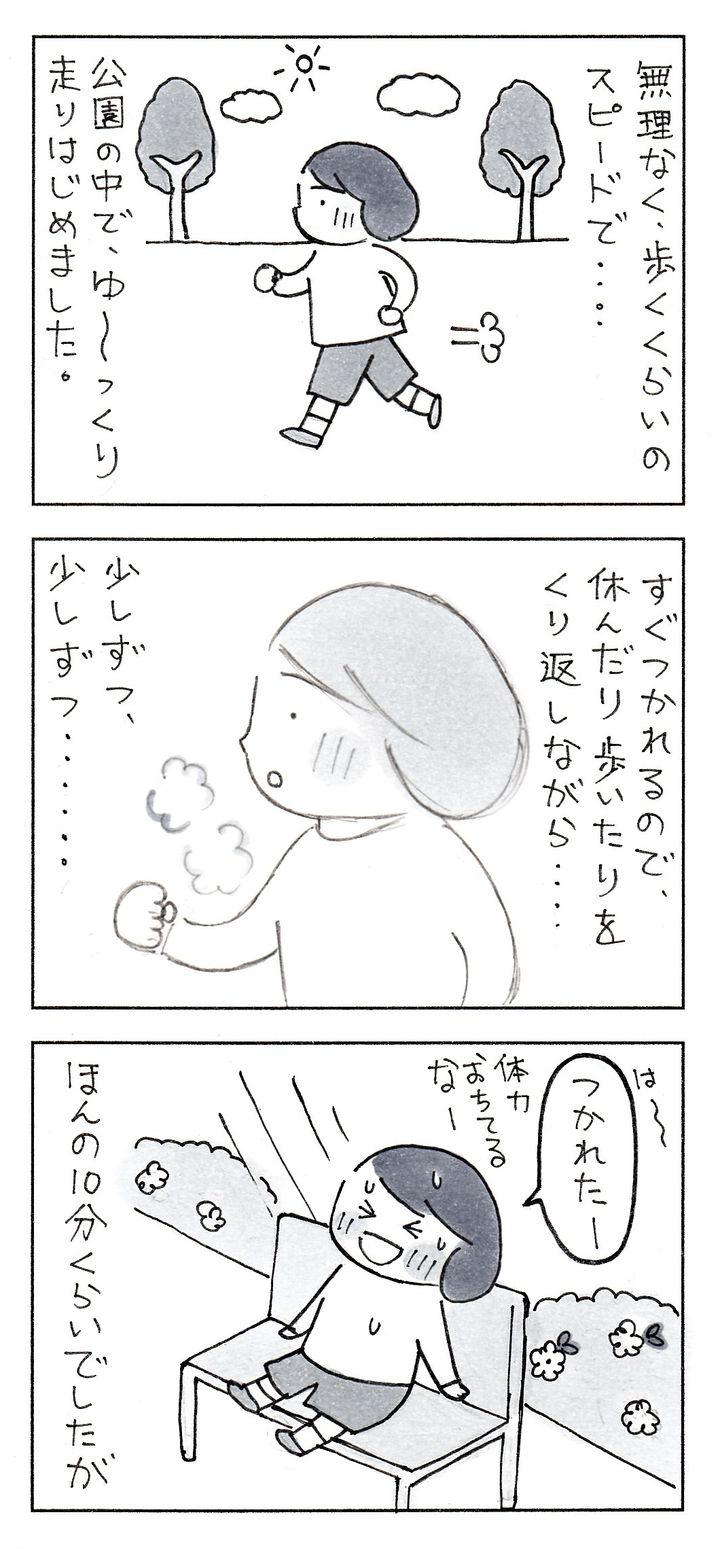 無理なく、歩くくらいの
スピードで・・・・
公園の中で、ゆ〜っくり
走りはじめました。
すぐつかれるので、
休んだり歩いたりを
くり返しながら・・・・
少しずつ、
少しずつ・・・・・・・
は〜
つかれたー
体力
おちてる
なー
ほんの10分くらいでしたが